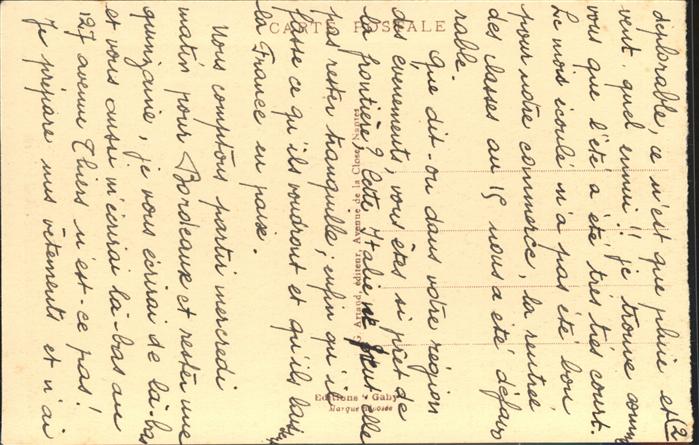 2
déplorable, ce n'est que pluie et
vent. quel ennui!! je trouve comme
vous que l'été a été très très court.
Le mois écoulé n'a pas été bon
pour notre commerce, la rentrée
des classes au 15 nous a été défavo
rable.
Que dit-on dans votre région
des evenements, vous êtes si prêt de
la frontière? Cette Italie ne peut elle
pas rester tranquille, enfin qu'il
fasse ce qu'ils voudront et qu'ils laissent
la France en paix.
Nous comptons partir mercredi
matin pour Bordeaux et rester une
quinzaine, je vous écrirai de là-bas
et vous aussi m'écrirai là-bas au
127 avenue Thiers n'est-ce pas!
Je prépare mes vêtements et n'ai
CARTE POSTALE
G. Artaud, éditeur, Avenue de la Close, Nantes
Editions "Gaby"
Marque déposée